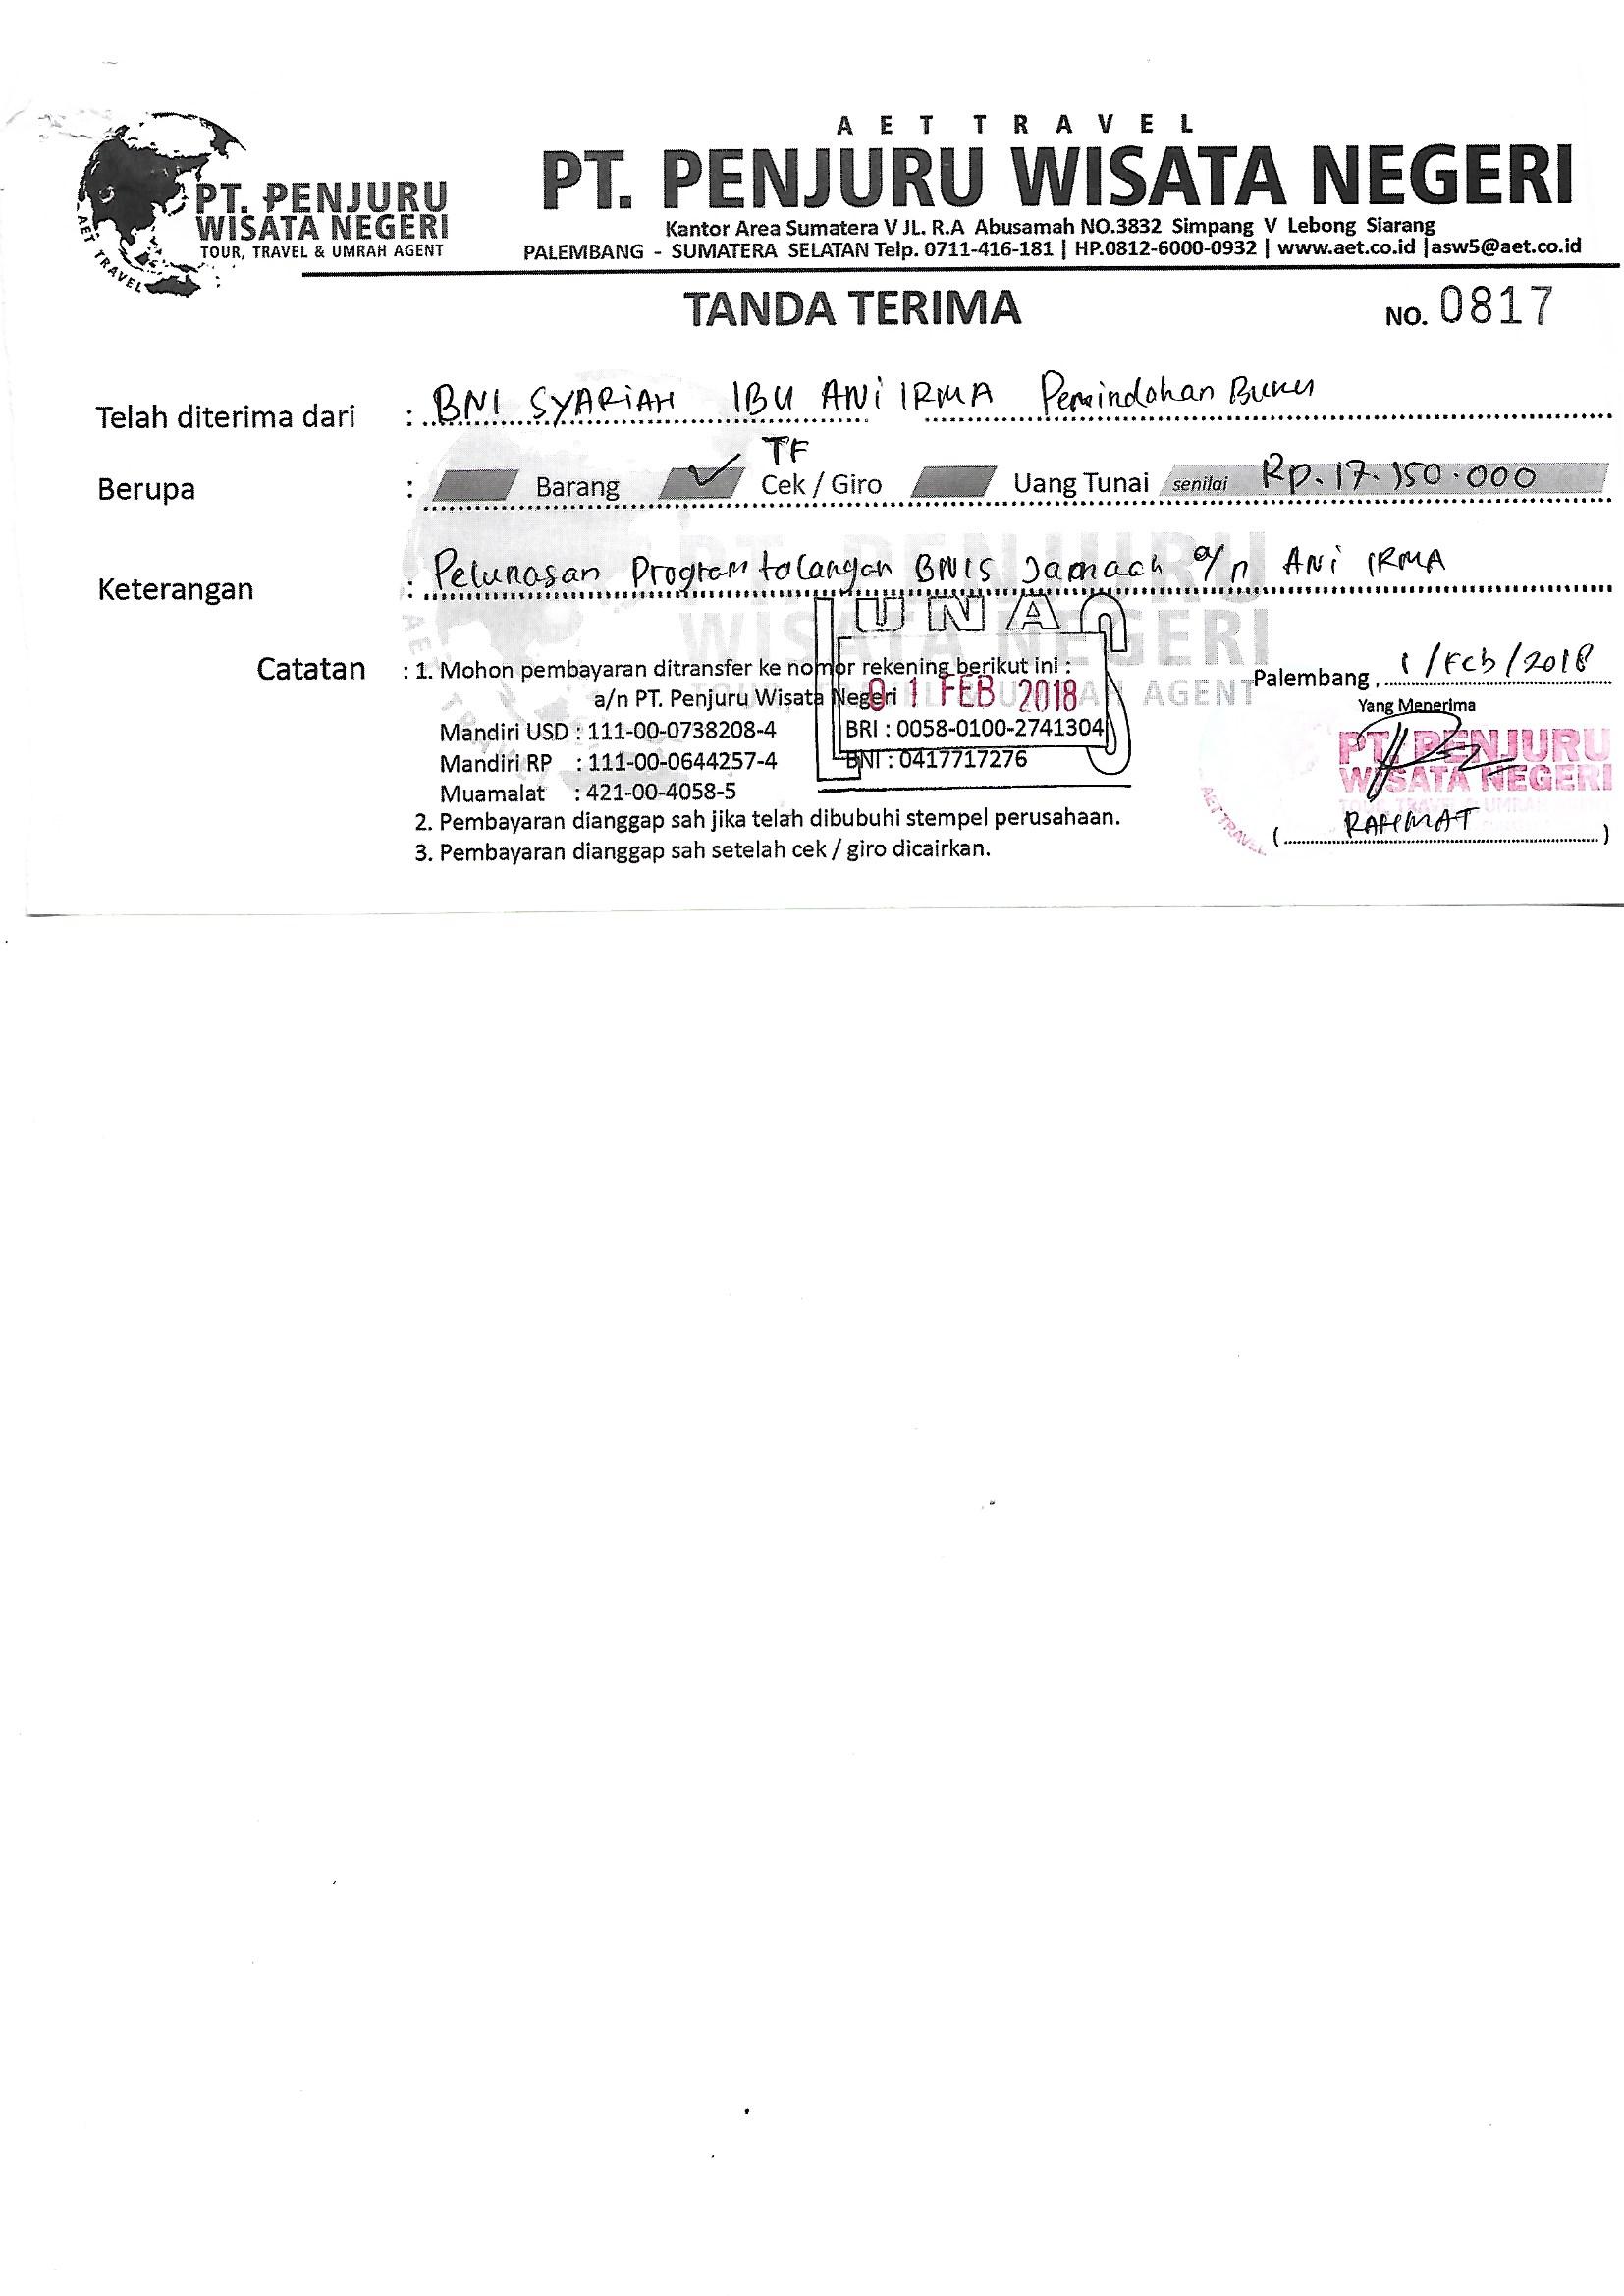 AET TRAVEL
PT. PENJURU WISATA NEGERI
PT. PENJURU
WISATA NEGERI
TOUR, TRAVEL & UMRAH AGENT
AET TRAVEL
Kantor Area Sumatera V JL. R.A Abusamah NO.3832 Simpang V Lebong Siarang
PALEMBANG - SUMATERA SELATAN Telp. 0711-416-181 | HP.0812-6000-0932 | www.aet.co.id |asw5@aet.co.id
TANDA TERIMA NO. 0817
Telah diterima dari : BNI SYARIAH IBU ANI IRMA Pemindahan
TF
Berupa : Barang Cek / Giro Uang Tunai senilai Rp. 17.150.000
Keterangan : Pelunasan Program talangan BNIS Jamaah a/n ANI IRMA
LUNAS
Catatan : 1. Mohon pembayaran ditransfer ke nomor rekening berikut ini :
a/n PT. Penjuru Wisata Negeri
01 FEB 2018
Mandiri USD : 111-00-0738208-4 BRI : 0058-0100-2741304
Mandiri RP : 111-00-0644257-4 BNI : 0417717276
Muamalat : 421-00-4058-5
2. Pembayaran dianggap sah jika telah dibubuhi stempel perusahaan.
3. Pembayaran dianggap sah setelah cek / giro dicairkan.
Palembang, 1/Feb/2018
Yang Menerima
PT. PENJURU
WISATA NEGERI
AET TRAVEL
(RAHMAT)